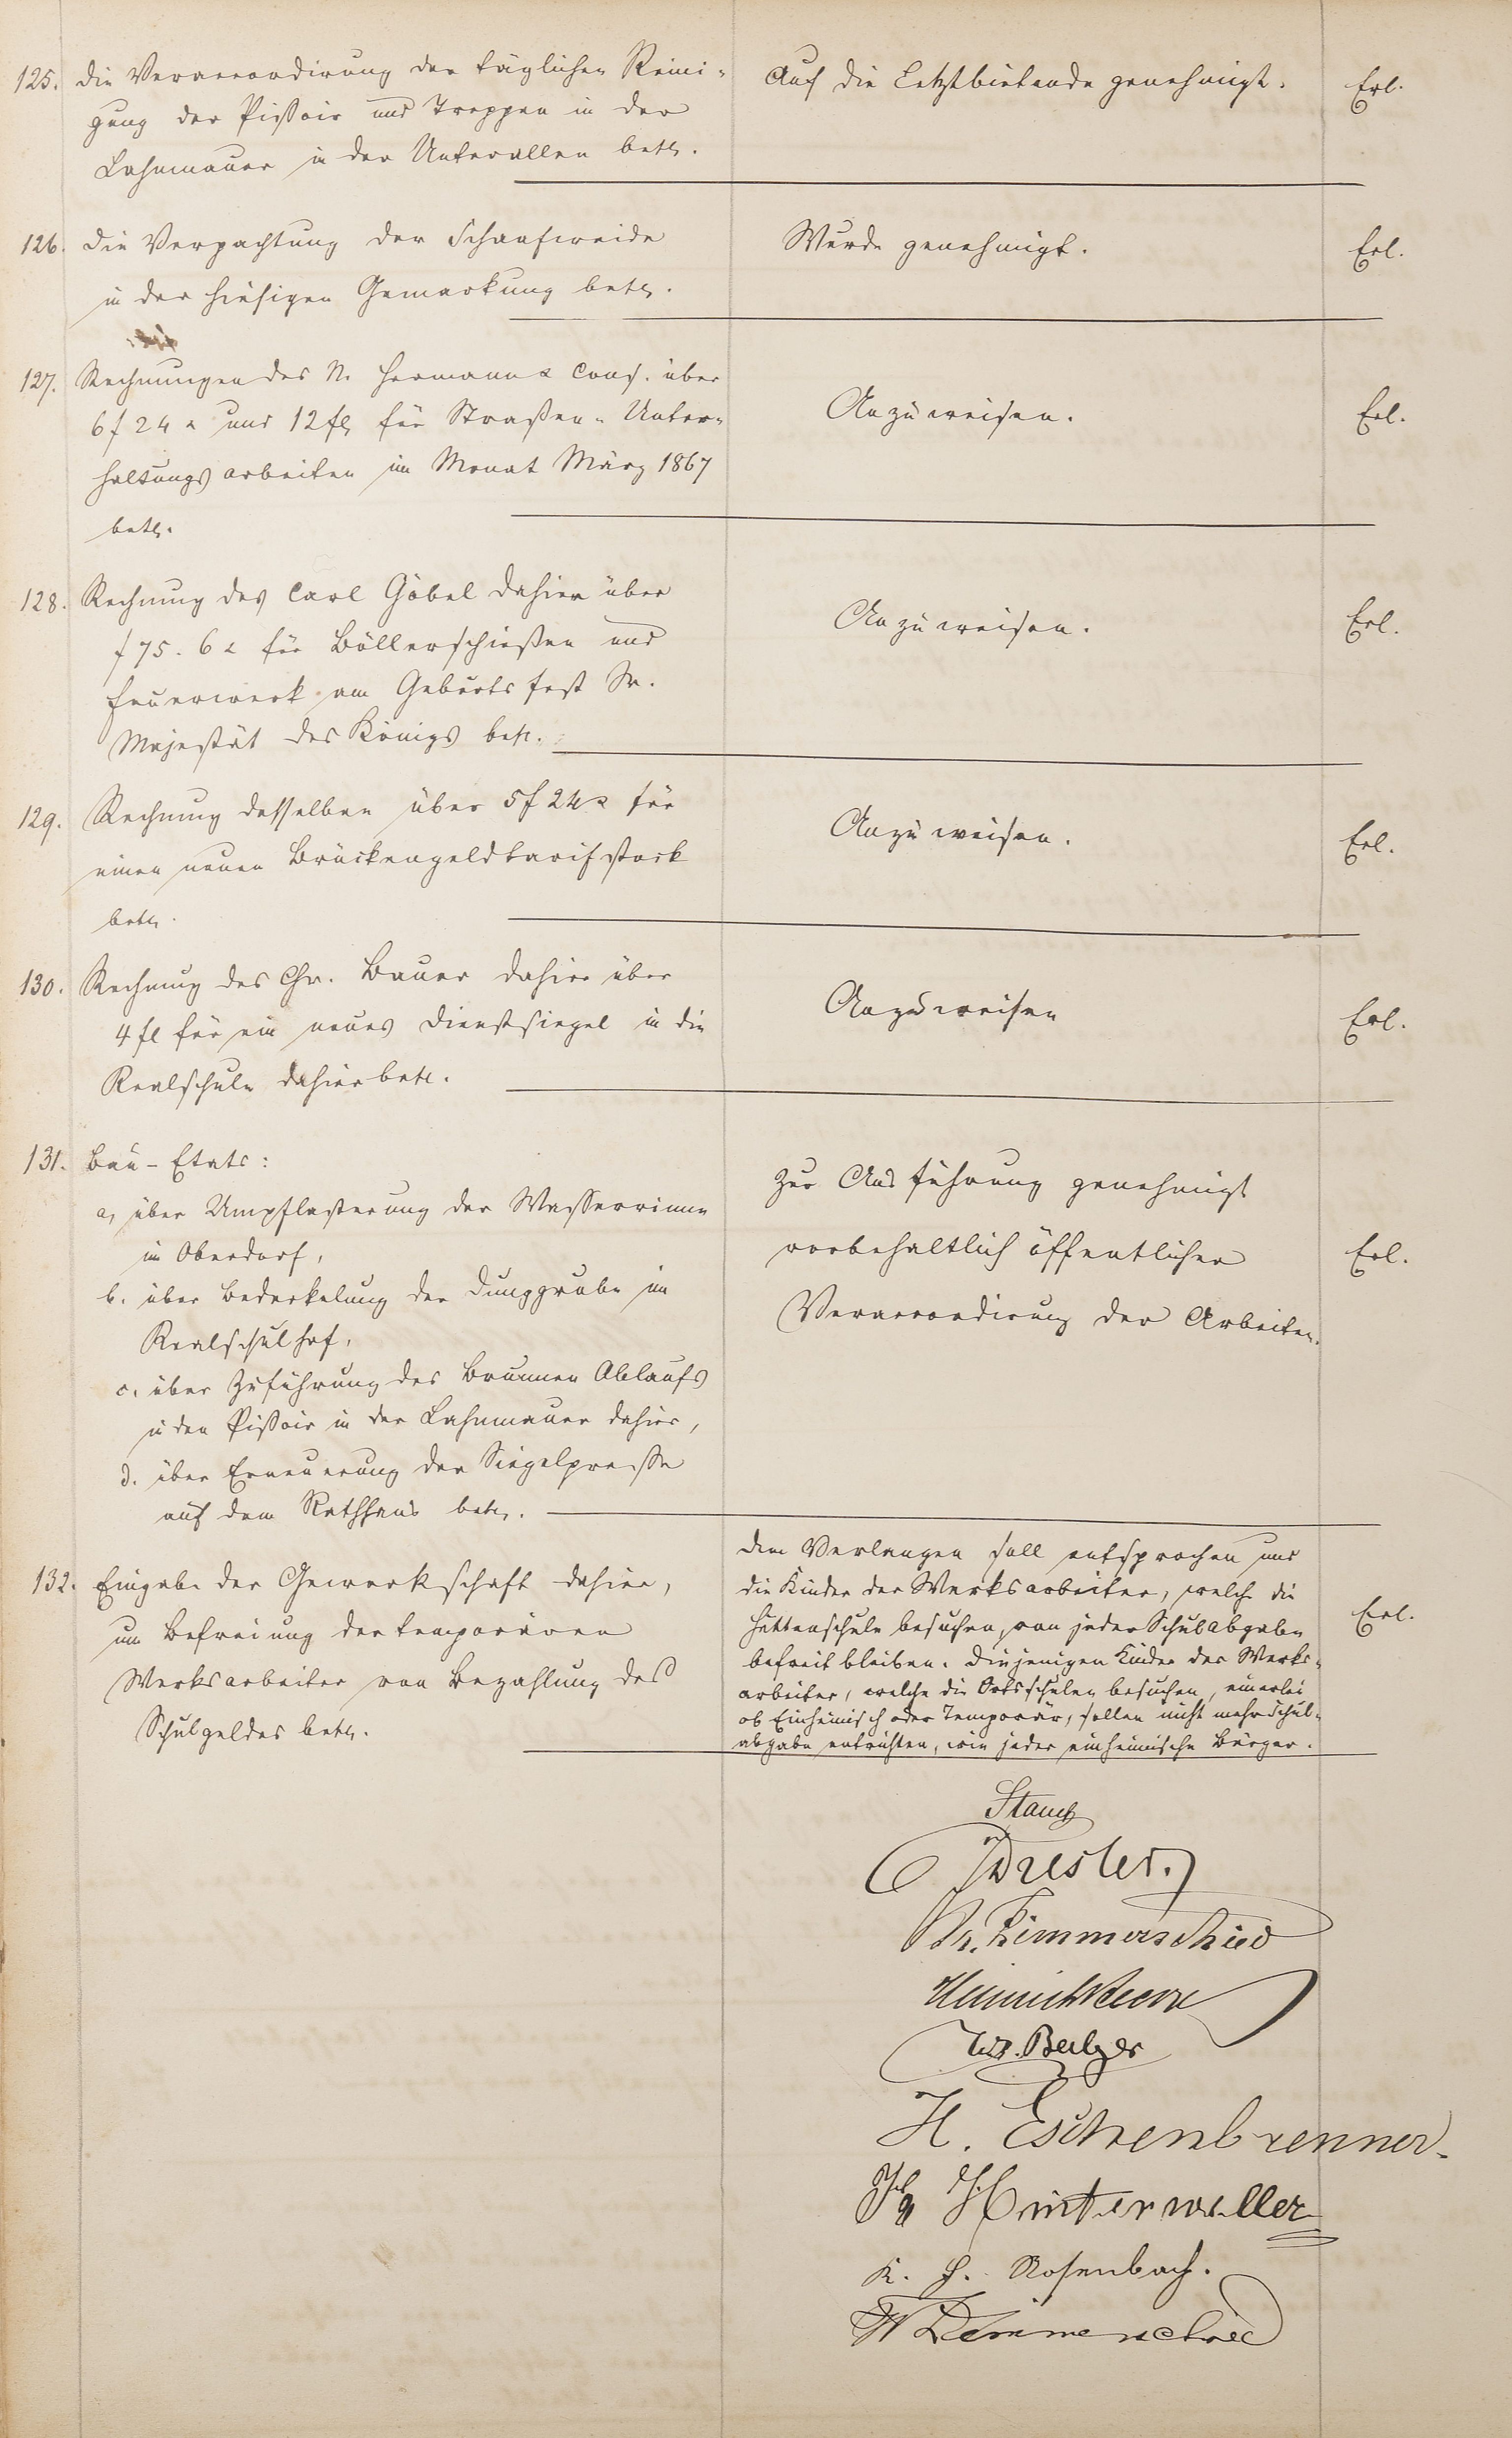 125. die Veraccordirung der täglichen Reini-
gung der Pissoir und Treppen in der
Lahnmauer in der Unterallen betr.
Auf die Letztbietende genehmigt.
Erl.
126. die Verpachtung der Schaafweide
in der hiesigen Gemarkung betr.
Wurde genehmigt.
Erl.
127. Rechnungen des N. Hermann & Cons. über
6 f 24 x und 12 fl für Straßen-Unter-
haltungsarbeiten im Monat März 1867
betr.
Anzuweisen.
Erl.
128. Rechnung des Carl Göbel dahier über
f 75. 6 x für Böllerschießen und
Feuerwerk am Geburtsfest Sr.
Majestät des Königs betr.
Anzuweisen.
Erl.
129. Rechnung desselben über 5 f 24 x für
einen neuen Brückengeldtarifstock
betr.
Anzuweisen.
Erl.
130. Rechnung des Chr. Bauer dahier über
4 fl für ein neues Dienstsiegel in die
Realschule dahier betr.
Anzuweisen
Erl.
131. Bau-Etats:
a, über Umpflasterung der Wasserrinne
im Oberdorf,
b. über Bedeckelung der Dunggrube im
Realschulhof,
c. über Zuführung des Brunnen Ablaufs
in den Pissoir in der Lahnmauer dahier,
d. über Erneuerung der Siegelpresse
auf dem Rathhaus betr.
Zur Ausführung genehmigt
vorbehaltlich öffentlicher
Veraccordirung der Arbeiten.
Erl.
132. Eingabe der Gewerkschaft dahier,
um Befreiung der temporären
Werksarbeiter von Bezahlung des
Schulgeldes betr.
Dem Verlangen soll entsprochen und
die Kinder der Werksarbeiter, welche die
Hüttenschule besuchen, von jeder Schulabgabe
befreit bleiben. Diejenigen Kinder der Werks-
arbeiter, welche die Ortsschulen besuchen, einerlei
ob Einheimisch oder Temporär, sollen nicht mehr Schul-
abgabe entrichten, wie jeder einheimische Bürger.
Erl.
Stauch
Dresler.
Kimmerschied
Heinrich
W. Balzer
H. Eschenbrenner.
Hinterweller
K. H. Rosenbach.